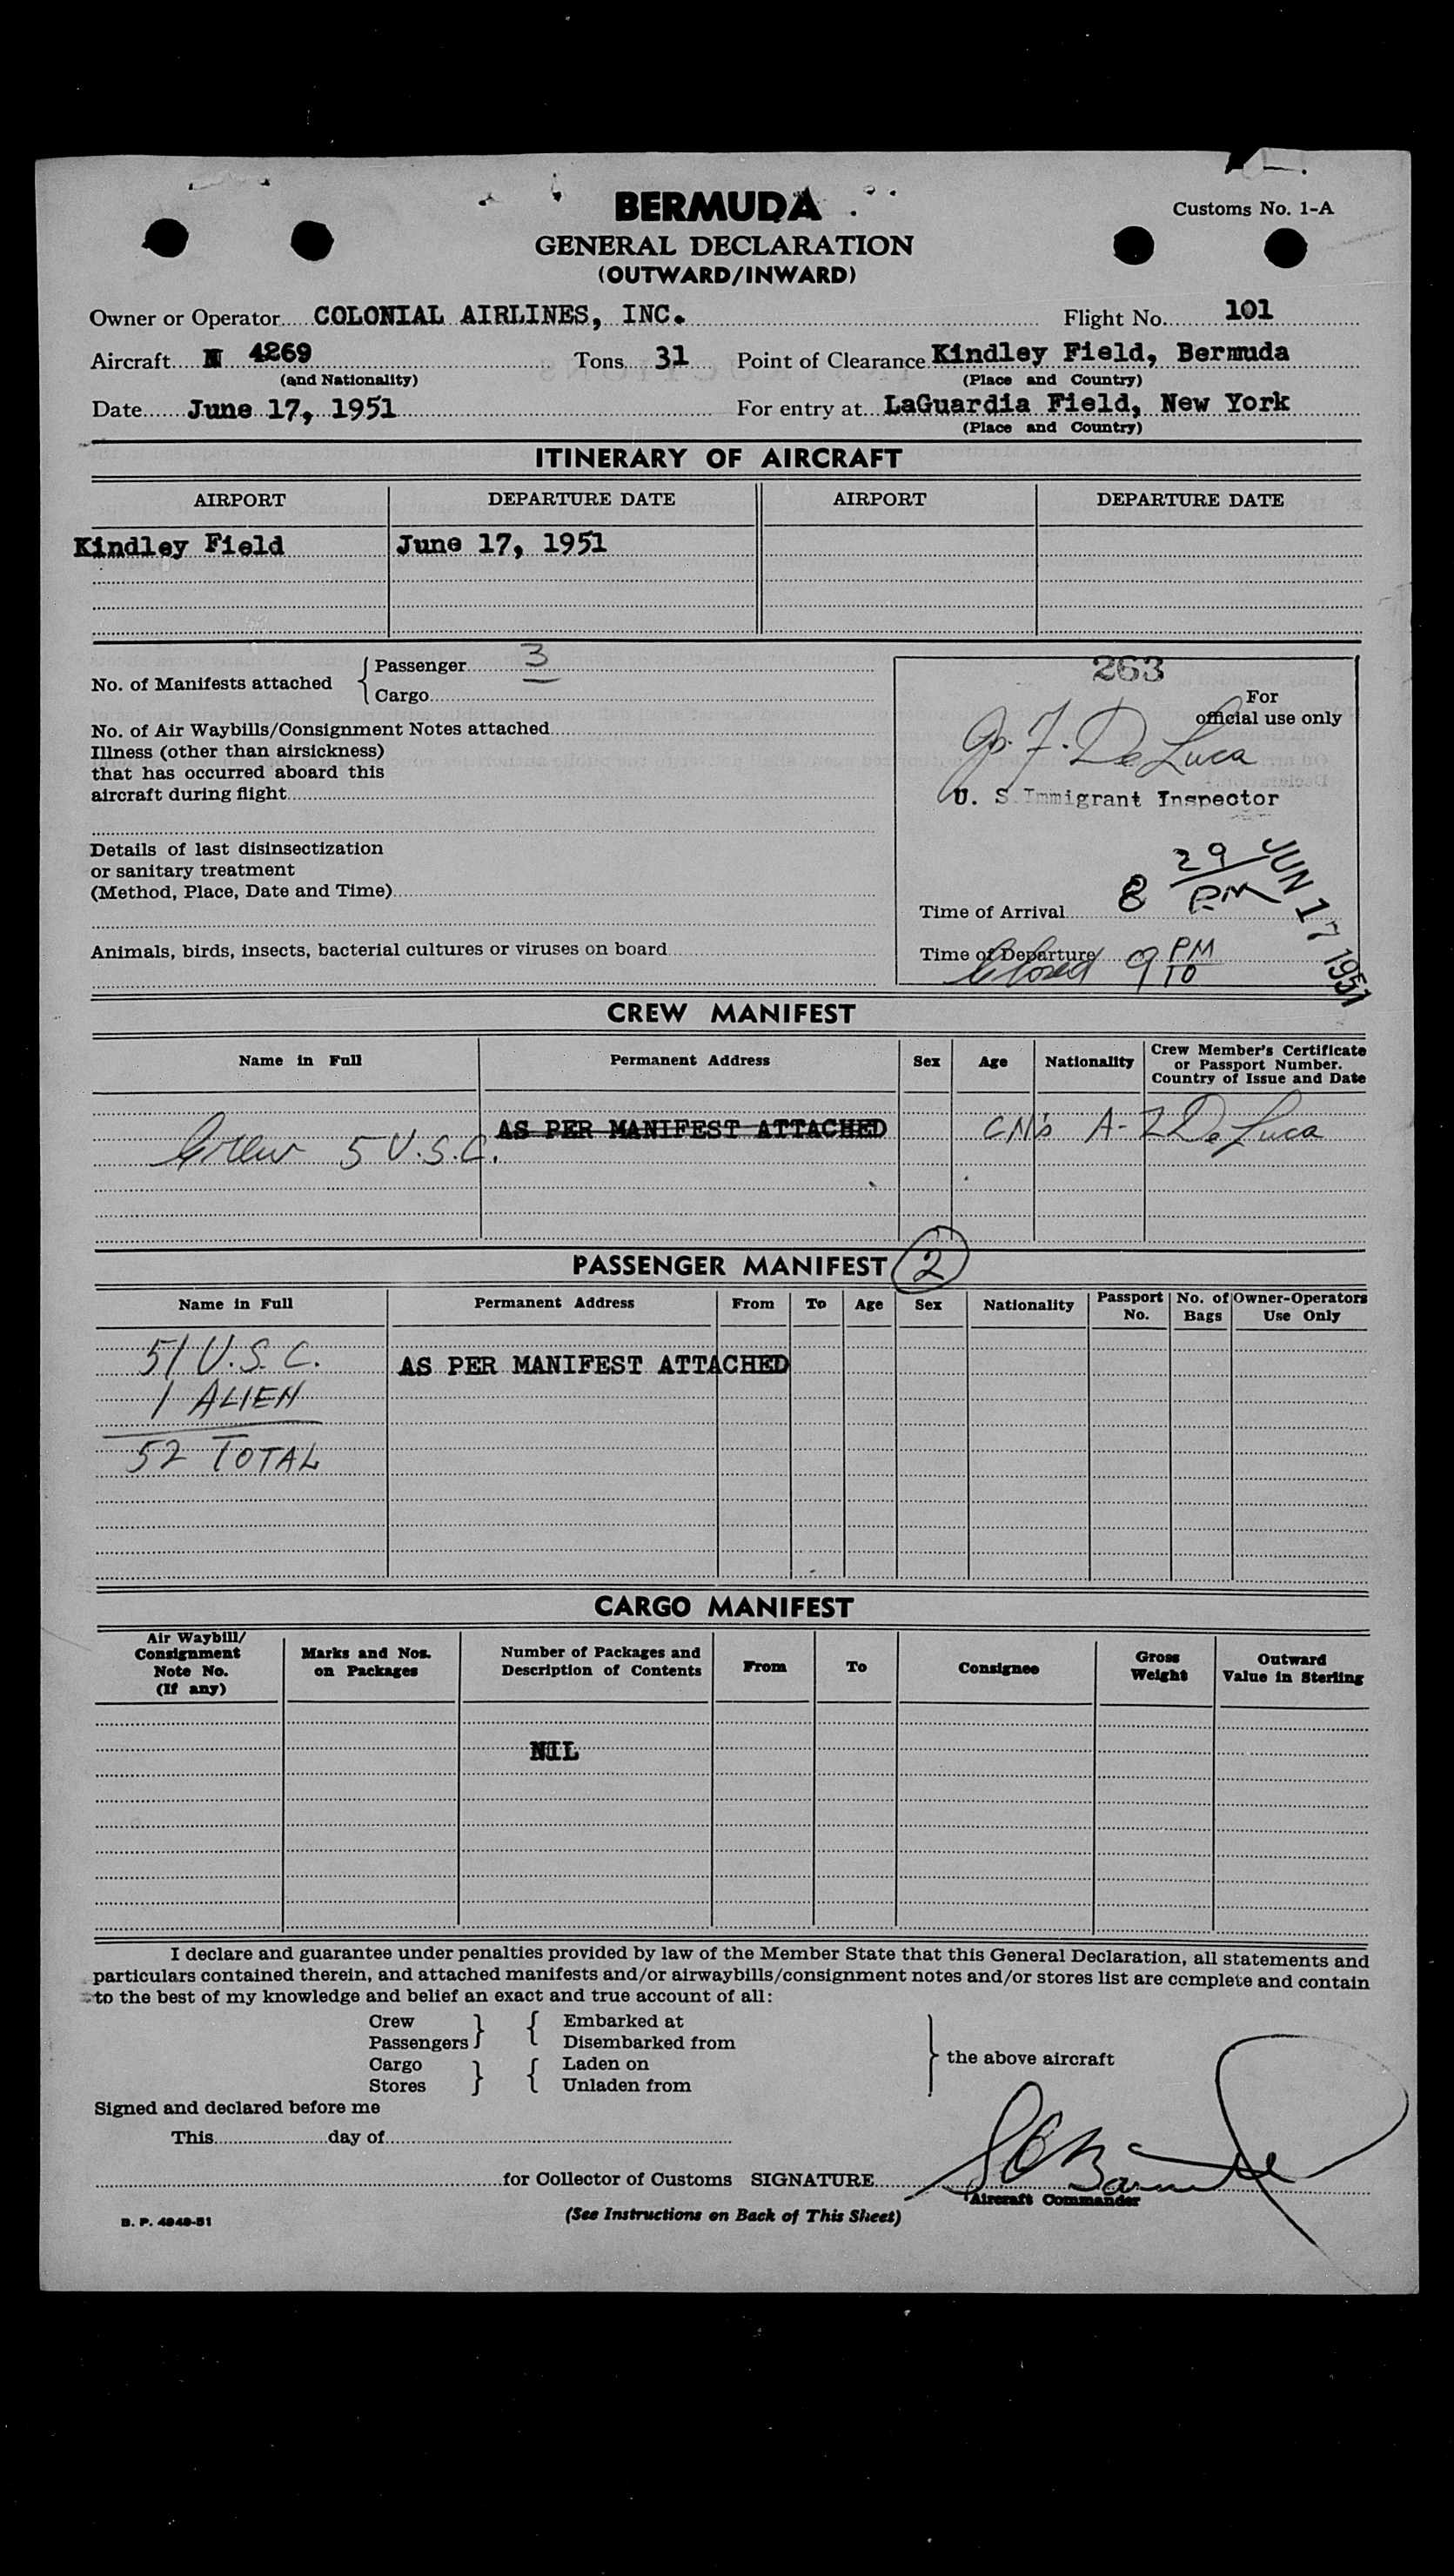 BERMUDA
Customs No. 1-A
GENERAL DECLARATION
(OUTWARD/INWARD)
Owner or Operator COLONIAL AIRLINES, INC. Flight No. 101
Aircraft N 4269 Tons 31 Point of Clearance Kindley Field, Bermuda
(and Nationality) (Place and Country)
Date June 17, 1951 For entry at LaGuardia Field, New York
(Place and Country)
ITINERARY OF AIRCRAFT
AIRPORT DEPARTURE DATE AIRPORT DEPARTURE DATE
Kindley Field June 17, 1951
No. of Manifests attached
Passenger 3
Cargo
No. of Air Waybills/Consignment Notes attached
Illness (other than airsickness)
that has occurred aboard this
aircraft during flight
Details of last disinsectization
or sanitary treatment
(Method, Place, Date and Time)
Animals, birds, insects, bacterial cultures or viruses on board
263
For
official use only
De Luca
U. S. Immigrant Inspector
Time of Arrival 8 29 PM
JUN 17 1951
Time of Departure
Closed 9 PM 10
CREW MANIFEST
Name in Full Permanent Address Sex Age Nationality Crew Member's Certificate
or Passport Number.
Country of Issue and Date
AS PER MANIFEST ATTACHED
Crew 5 U.S.C. De Luca
PASSENGER MANIFEST 2
Name in Full Permanent Address From To Age Sex Nationality Passport No. No. of Bags Owner-Operators Use Only
51 U.S.C. AS PER MANIFEST ATTACHED
1 ALIEN
52 TOTAL
CARGO MANIFEST
Air Waybill/
Consignment
Note No.
(If any)
Marks and Nos.
on Packages
Number of Packages and
Description of Contents
From To Consignee
Gross
Weight
Outward
Value in Sterling
NIL
I declare and guarantee under penalties provided by law of the Member State that this General Declaration, all statements and
particulars contained therein, and attached manifests and/or airwaybills/consignment notes and/or stores list are complete and contain
to the best of my knowledge and belief an exact and true account of all:
Crew Embarked at
Passengers Disembarked from
Cargo Laden on
Stores Unladen from
the above aircraft
Signed and declared before me
This day of
for Collector of Customs SIGNATURE
Aircraft Commander
(See Instructions on Back of This Sheet)
B. P. 4949-51